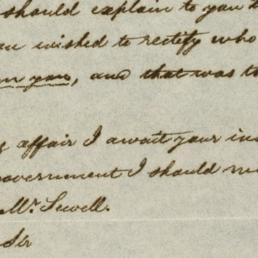 should explain to you
wished to rectify who
you, and that was
affair I await your in
overnment I should
Mr. Sewell.
Sir